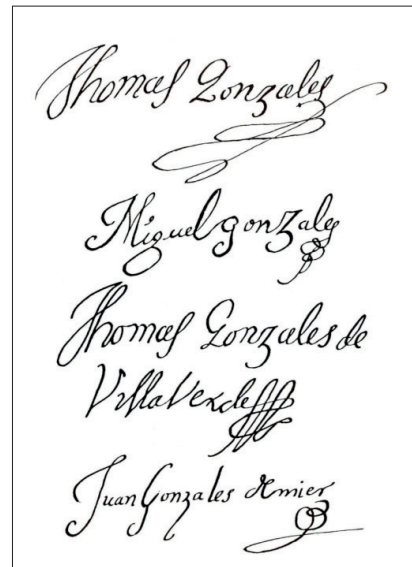 Thomas Gonzales
Miguel gonzales
Thomas Gonzales de
VillaVerde
Juan Gonzales